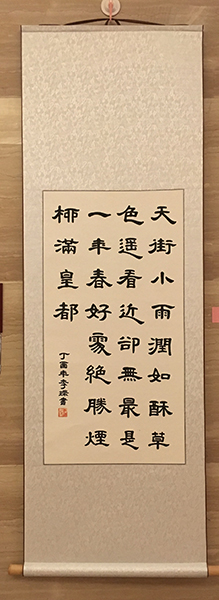 天街小雨潤如酥草
色遥看近卻無最是
一年春好處絶勝煙
柳滿皇都
丁酉年李燦書